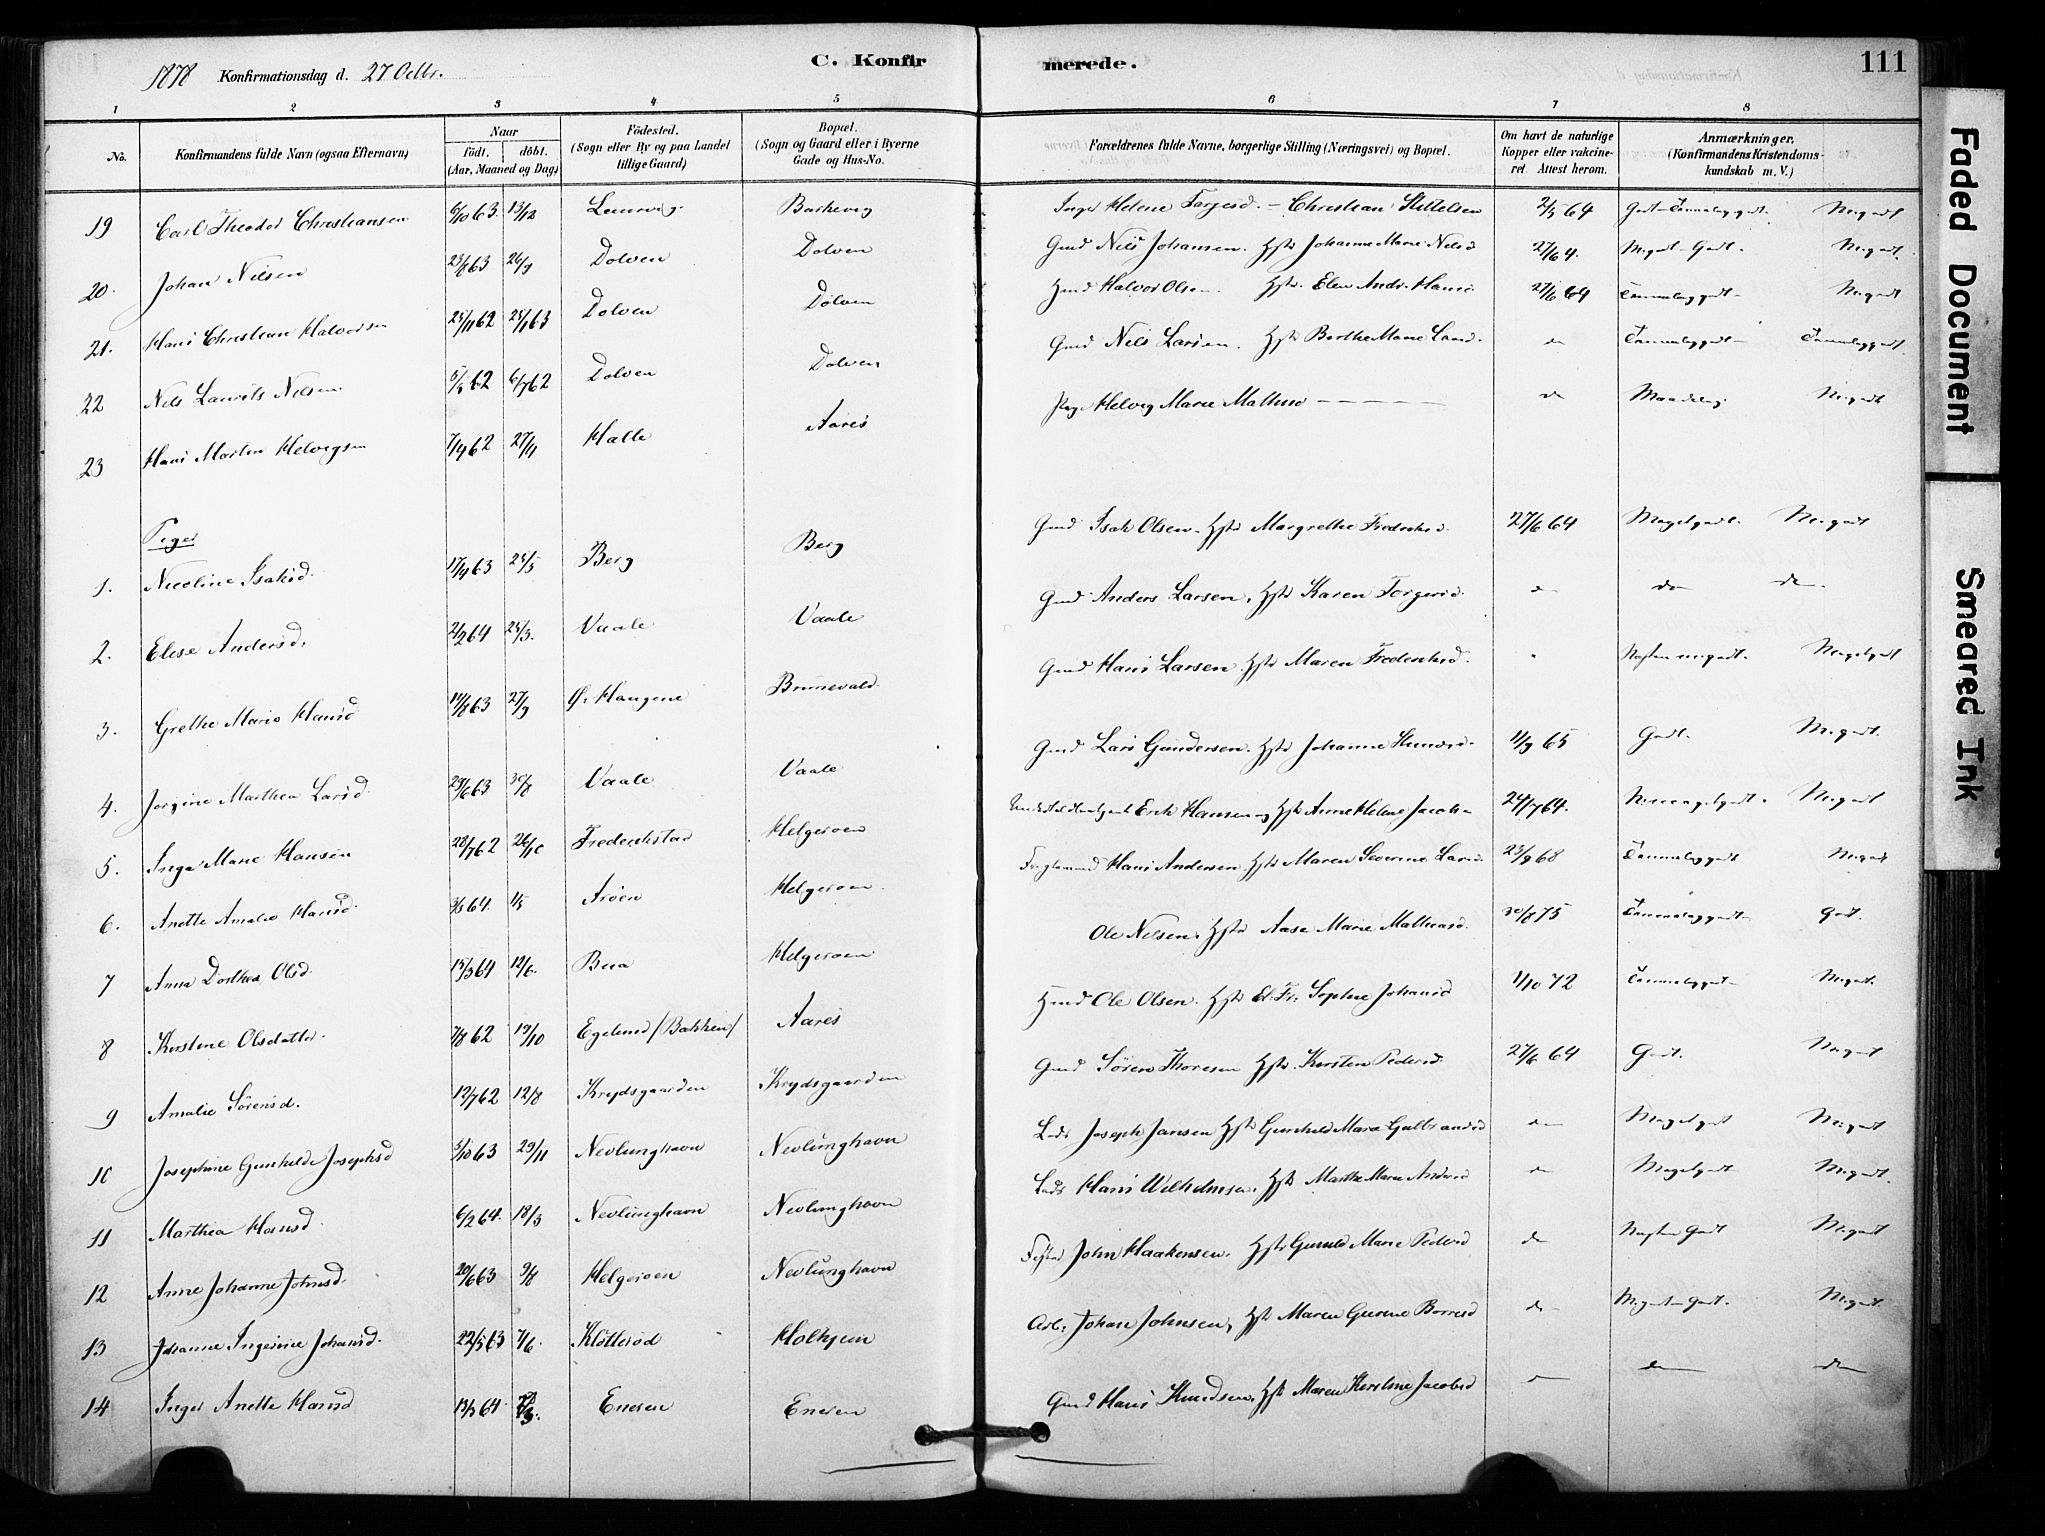 1878 Konfirmationsdag d. 27 Octbr. C. Konfirmerede. 111
1 2 3 4 5 6 7 8
No. Konfirmandens fulde Navn (ogsaa Efternavn) Naar födt. döbt. (Aar, Maaned og Dag) Födested. (Sogn eller By og paa Landet tillige Gaard) Bopæl. (Sogn og Gaard eller i Byerne Gade og Hus-No. Forældrenes fulde Navne, borgerlige Stilling (Næringsvei) og Bopæl. Om havt de naturlige Kopper eller vakcineret. Attest herom. Anmærkninger. (Konfirmandens Kristendomskundskab m. V.)
19 Carl Theodor Christiansen 6/10 63. 13/12 Barkevig Helene Christian Kittelsen 2/3 64
20. Johan Nilsen 23/8 63 26/9 Dolven Dolven Gmd Nils Johansen. Hst. Johanne Marie Nilsd 27/6 64. Meg. godt.
21. Hans Christian Halvorsen 25/11 62 25/1 63 Dolven Dolven Hmd Halvor Olsen. Hst. Elen Andr. Hansd 27/6 64 Temmelig godt Meg. godt
22 Nils Laurits Nilsen 5/3 62 6/7 62 Dolven Dolven Gmd Nils Larsen. Hst Berthe Marie Larsd. do Temmelig godt Temmelig godt.
23 Hans Martin Helvigsen 7/9 62 27/11 Halle Aares Pige Helvig Marie Mathisd do Maadelig Meg. godt
Piger
1. Nicoline Isaksd. 17/4 63 25/5 Berg Berg Gmd Isak Olsen. Hst Margrethe Frederiksd. 27/6 64 Meget godt. Meg. godt
2. Elise Andersd. 2/2 64 25/3. Vaale Vaale Gmd Anders Larsen. Hst Karen Torgersd. do do do.
3. Grethe Marie Hansd 14/8 63 27/9 Ø. Haugene Brunevald. Gmd Hans Larsen. Hst Maren Frederiksd. Næsten meg. godt. Meget godt
4. Jorgine Marthea Larsd. 29/6 63 30/8 Vaale Vaale Gmd Lars Gundersen. Hst Johanne 11/9 65 Godt. Meg. godt.
5. Inga Marie Hansen 28/7 62 26/10 Frederikstad Helgeroen Erik Hansen og Hst Anne Helene 24/7 64. Meg. godt
6. Anette Amalie Hansd. 3/3 64. 1/5 Arøen Helgeroen. Hans Andersen Hst Maren Severine Larsd. 23/9 68 Temmelig godt Meg. godt
7 Anna Dorthea Olsd. 15/3 64 12/6. Bua Helgeroen. Ole Nilsen. Hst Aase Marie Mathiasd. 30/8 75 Temmelig godt Godt.
8 Kirstine Olsdatter. 7/8 62 19/10 Egelund /Bakken/ Aares Hmd Ole Olsen. Hst El. Fr. Sophie Johansd 1/10 72 Temmelig godt. Meg. godt.
9 Amalie Sörensd. 12/7 62 12/8 Krydsgaarden Krydsgaarden Gmd Sören Thoresen Hst. Kirsten Pedersd. 27/6 64 Godt. Meg. godt
10 Josephine Gunhilde Josephsd 5/10 63 29/11 Nevlunghavn Nevlunghavn Lods Joseph Jansen Hst Gunhild Maria Gulbrandsd do Meget godt Meg. godt
11 Marthea Hansd. 6/2 64. 18/3 Nevlunghavn Nevlunghavn Lods Hans Wilhelmsen. Hst Marthe Marie Andersd do Meget godt Meg. godt.
12 Anne Johanne Johnsd. 20/6 63 9/8 Helgeroen Nevlunghavn John Haakensen. Hst Gunild Marie Pedersd do Næsten Godt Meg. godt
13 Johanne Ingerine Johansd. 22/5 63 7/6. Klötteröd Holkjen Arb. Johan Johnsen, Hst Maren Gurine Borresd do Meg. godt.
14 Inger Anette Hansd 13/3 64 Enesen Enesen Gmd Hans Knudsen. Hst Maren Kirstine Jacobsd do do
Faded Document
Smeared Ink